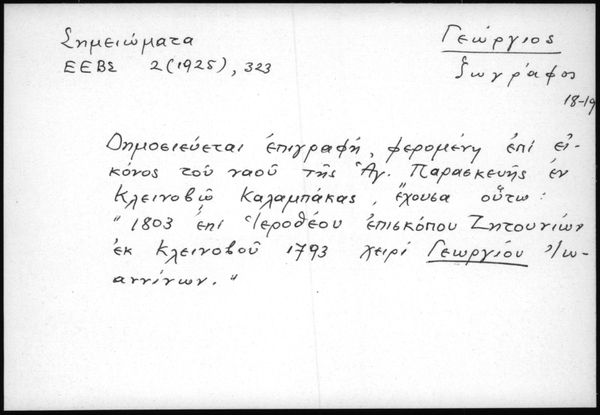 Σημειώματα
ΕΕΒΣ 2 (1925), 323
Γεώργιος
ζωγράφος
18-19
Δημοσιεύεται ἐπιγραφή, φερομένη ἐπί εἰ-
κόνος τοῦ ναοῦ τῆς Ἁγ. Παρασκευῆς ἐν
Κλεινοβῷ Καλαμπάκας, ἔχουσα οὕτω:
"1803 ἐπί Ἱεροθέου ἐπισκόπου Ζητουνίων
ἐκ Κλεινοβοῦ 1793 χειρί Γεωργίου Ἰω-
αννίνων."